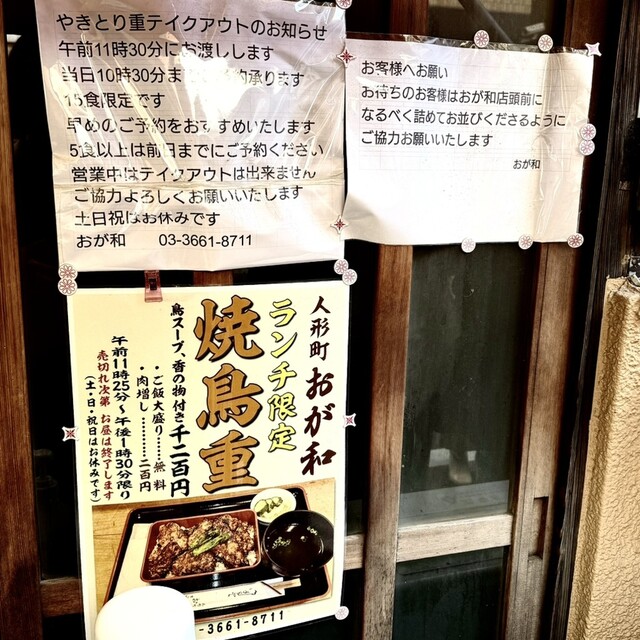 やきとり重テイクアウトのお知らせ
午前11時30分にお渡しします
当日10時30分まで 約承ります
15食限定です
早めのご予約をおすすめいたします
5食以上は前日までにご予約ください
営業中はテイクアウトは出来ません
ご協力よろしくお願いいたします
土日祝はお休みです
おが和 03-3661-8711
お客様へお願い
お待ちのお客様はおが和店頭前に
なるべく詰めてお並びくださるように
ご協力お願いいたします
おが和
人形町 おが和
ランチ限定
焼鳥重
鳥スープ、香の物付き 千二百円
・ご飯大盛り……無料
・肉増し………二百円
午前11時25分〜午後1時30分限り
売切れ次第 お昼は終了します
(土・日・祝日はお休みです)
-3661-8711